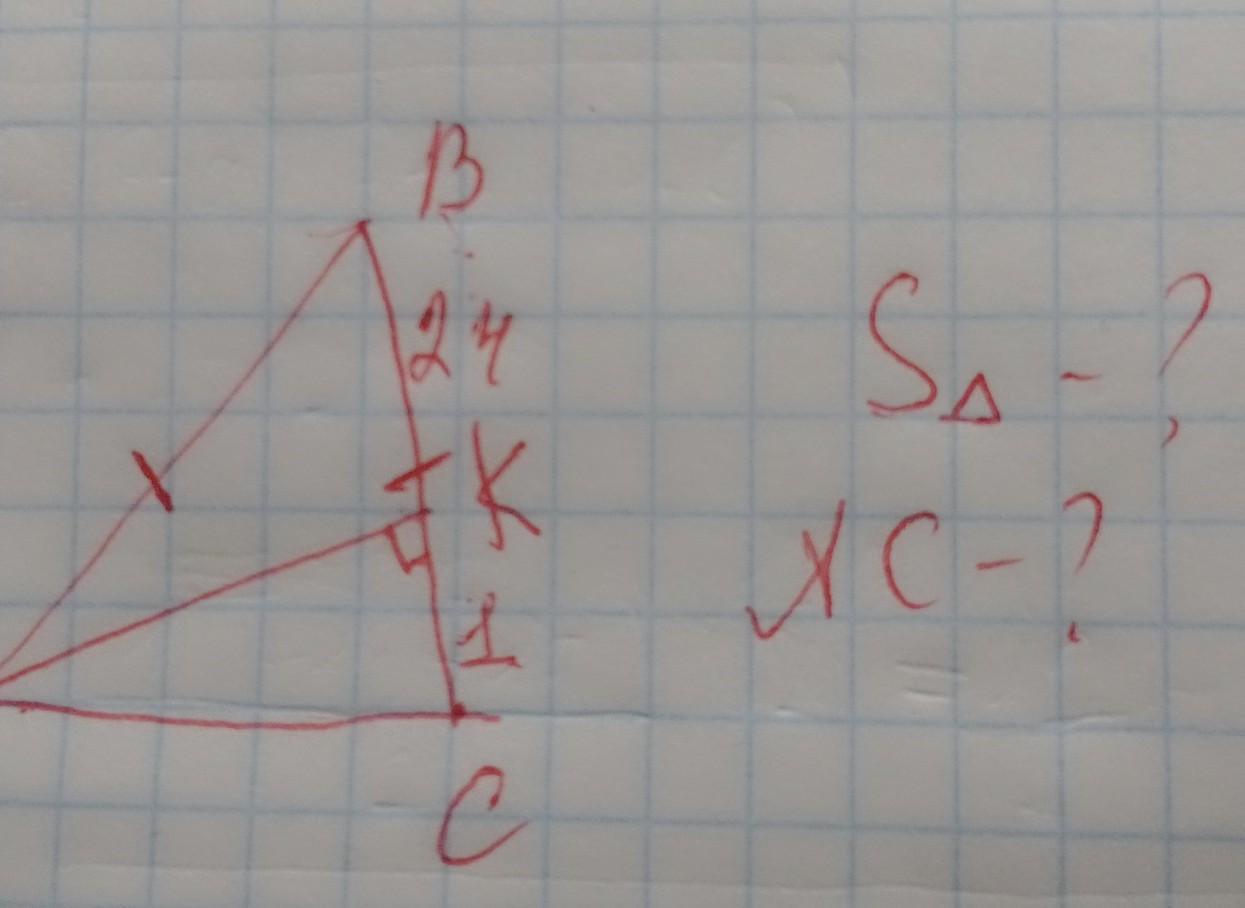 B
24
K
1
C
S△ - ?
XC - ?